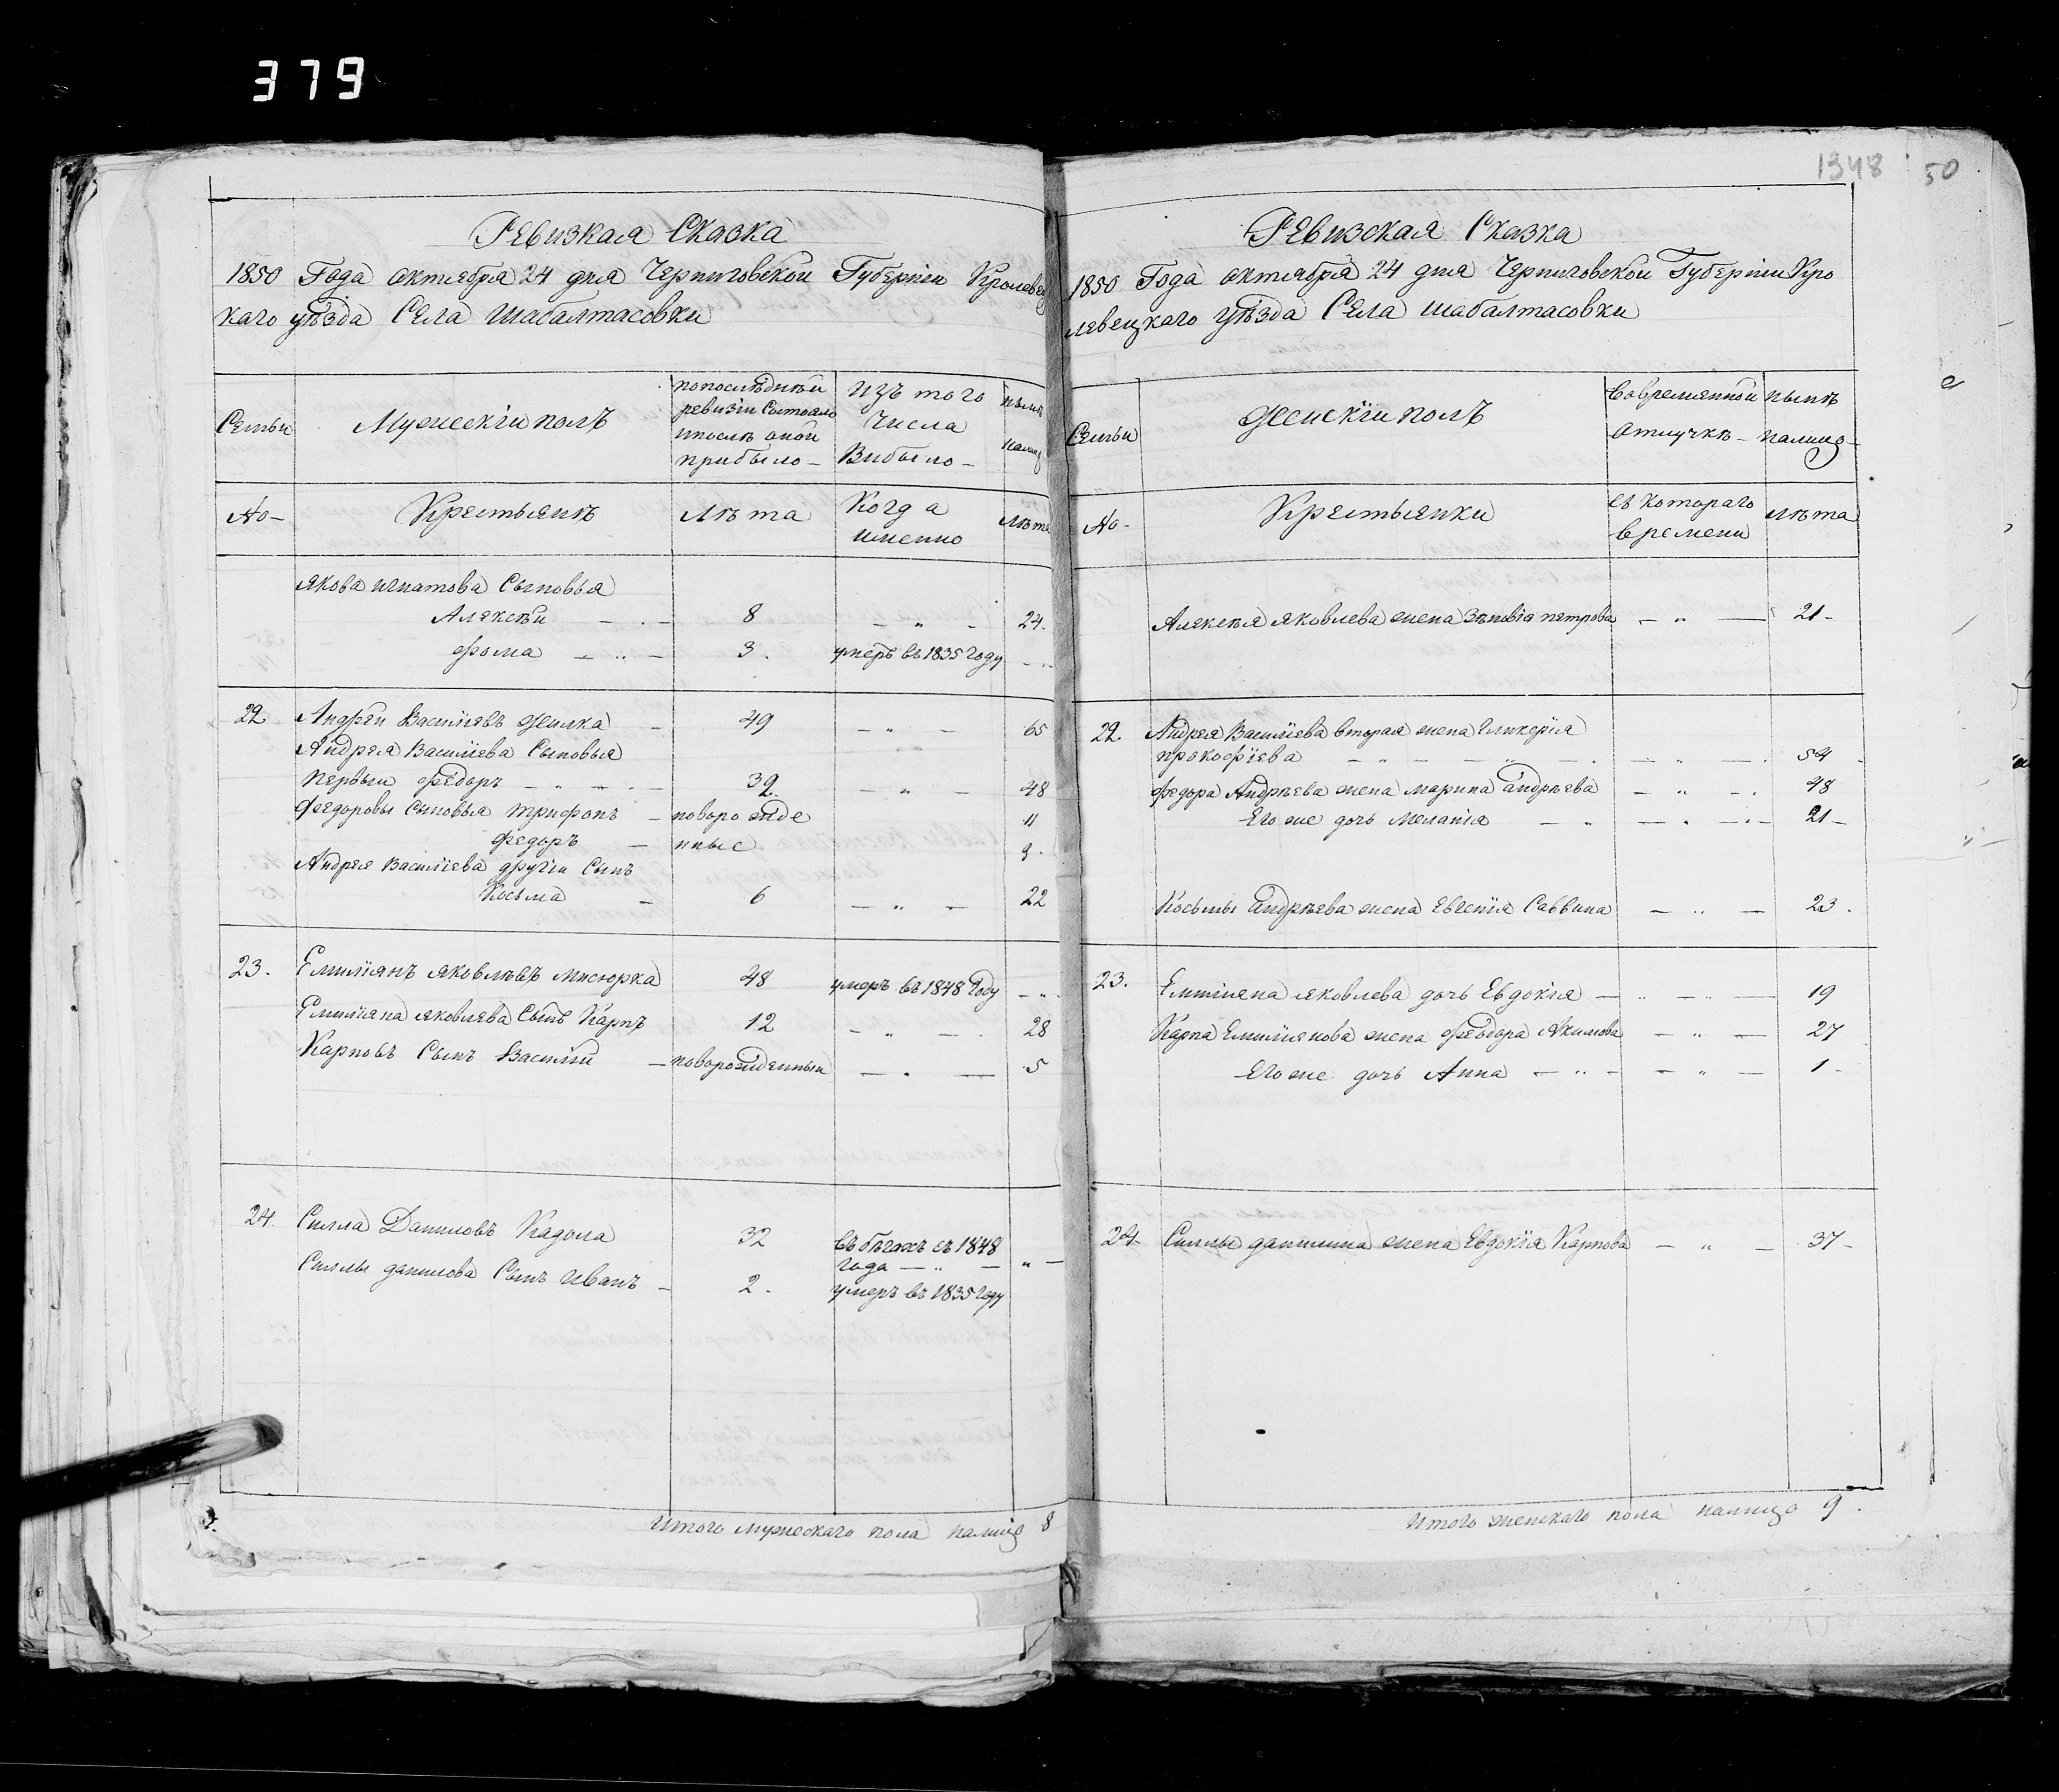 379
1348 50
Ревизкая Сказка
1850 Года октября 24 дня Черниговской Губерніи Кролевец
каго уѣзда Села Шабалтасовки
Семьи
Мужескій полъ
по послѣдней
ревизіи состояло
и послѣ оной
прибыло
изъ того
числа
выбыло
нынѣ
налиц
№
Крестьянъ
Лѣта
Когда
именно
Лѣта
Якова Игнатова Сыновья
Алексѣй 8 — „ — 24
Фома 3. умеръ въ 1835 году
22. Андрей Василіевъ Жилка 49 — „ — 65
Андрея Василіева Сыновья
Первый Федоръ 32. — „ — 48
Федоровы Сыновья Трифонъ — новорожде 11
Федоръ — нные 9.
Андрея Василіева другій Сынъ
Косьма 6 — „ — 22
23. Емиліянъ Яковлѣвъ Мисюрка 48 умеръ въ 1848 Году — „
Емиліяна Яковлева Сынъ Карпъ 12 — „ — 28
Карповъ Сынъ Василій — новорожденный — „ — 5
24. Силла Даниловъ Кадола 32 въ бѣгахъ съ 1848
года — „ — „ —
Силлы данилова Сынъ Иванъ 2. умеръ въ 1835 году
Итого мужескаго пола налицо 8
Ревизская Сказка
1850 Года октября 24 дня Черниговской Губерніи Кро
левецкаго уѣзда Села Шабалтасовки
Семьи
Женскій полъ
Во временной
отлучкѣ
нынѣ
налицо
№
Крестьянки
съ котораго
времени
Лѣта
Алексѣя Яковлева жена Зѣновія петрова — „ — 21
22. Андрея Василіева вторая жена Гликерія
прокофіева — „ — 54
Федора Андрѣева жена Марина Андрѣева — „ — 48
Его же дочь Меланія — „ — 21
Косьмы Андрѣева жена Евгенія Саввина — „ — 23.
23. Емиліяна Яковлева дочь Евдокія — „ — 19
Карпа Емиліянова жена Феодора Акимова — „ — 27
Его же дочь Анна — „ — 1
24 Силлы данилина жена Евдокія Карпова — „ — 37
Итого женскаго пола налицо 9.